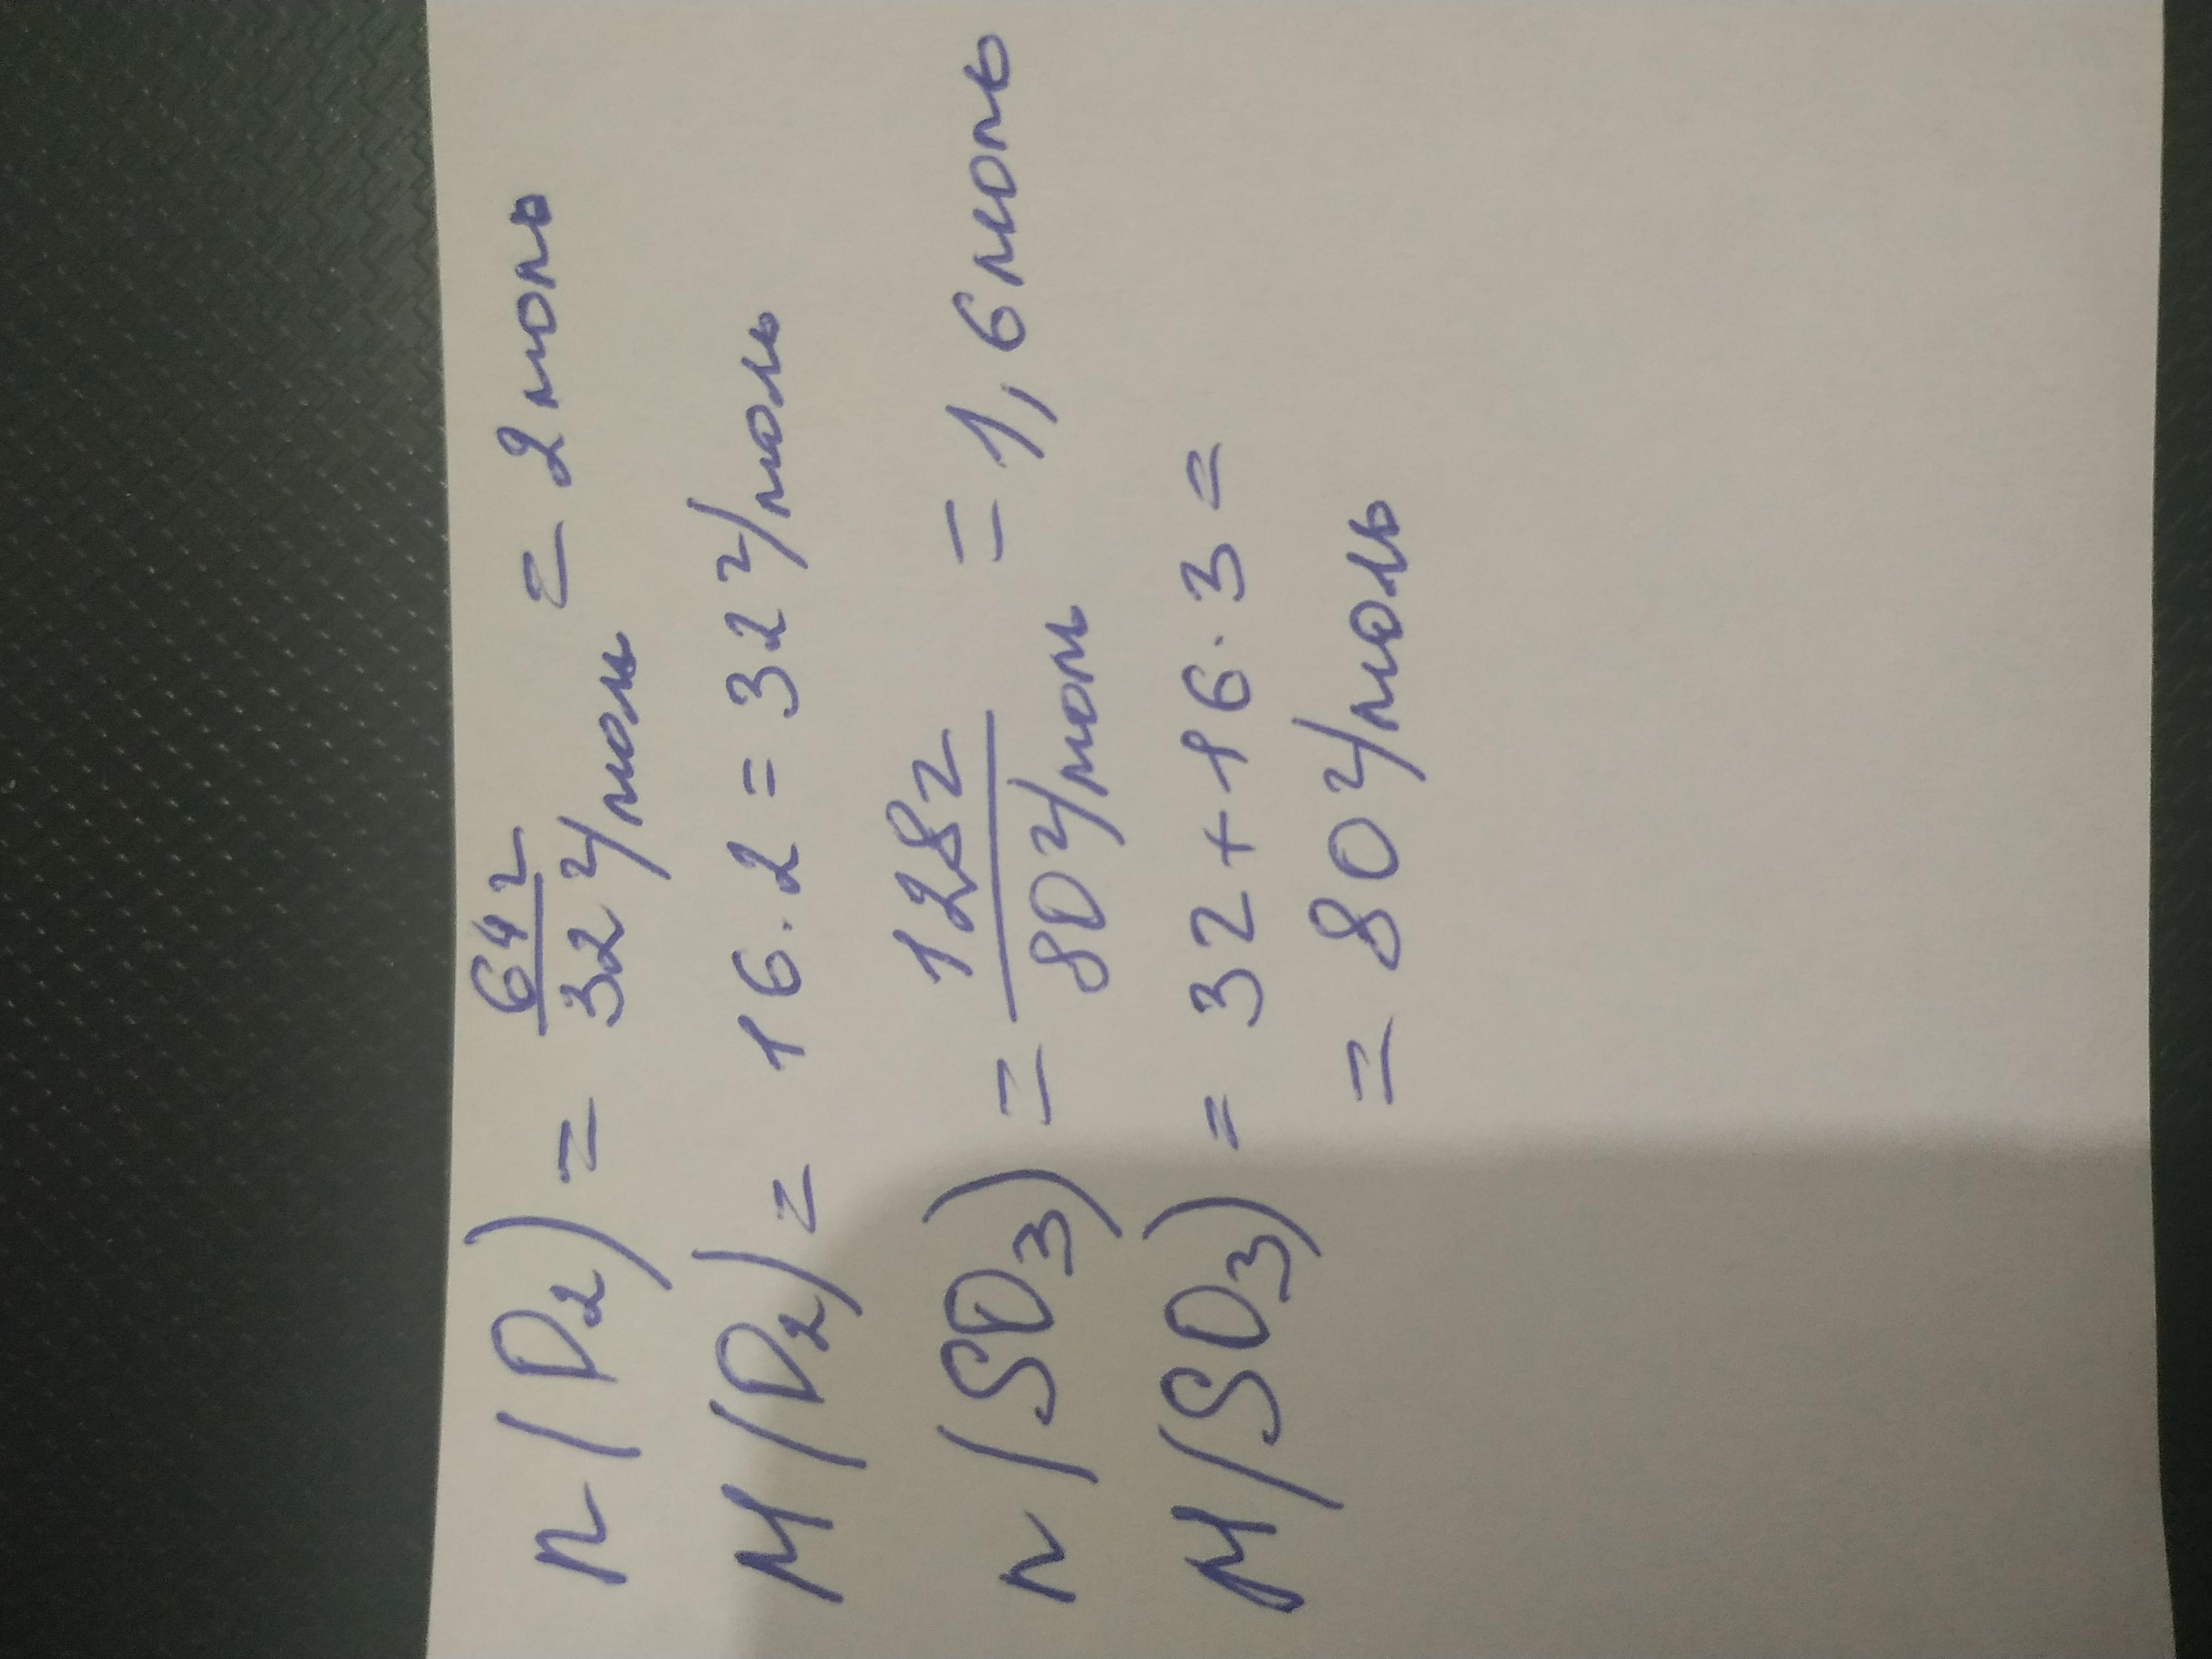 n(O₂) = 64г/32 г/моль = 2 моль
M(O₂) = 16·2 = 32 г/моль
n(SO₃) = 128г/80 г/моль = 1,6 моль
M(SO₃) = 32+16·3 =
= 80 г/моль